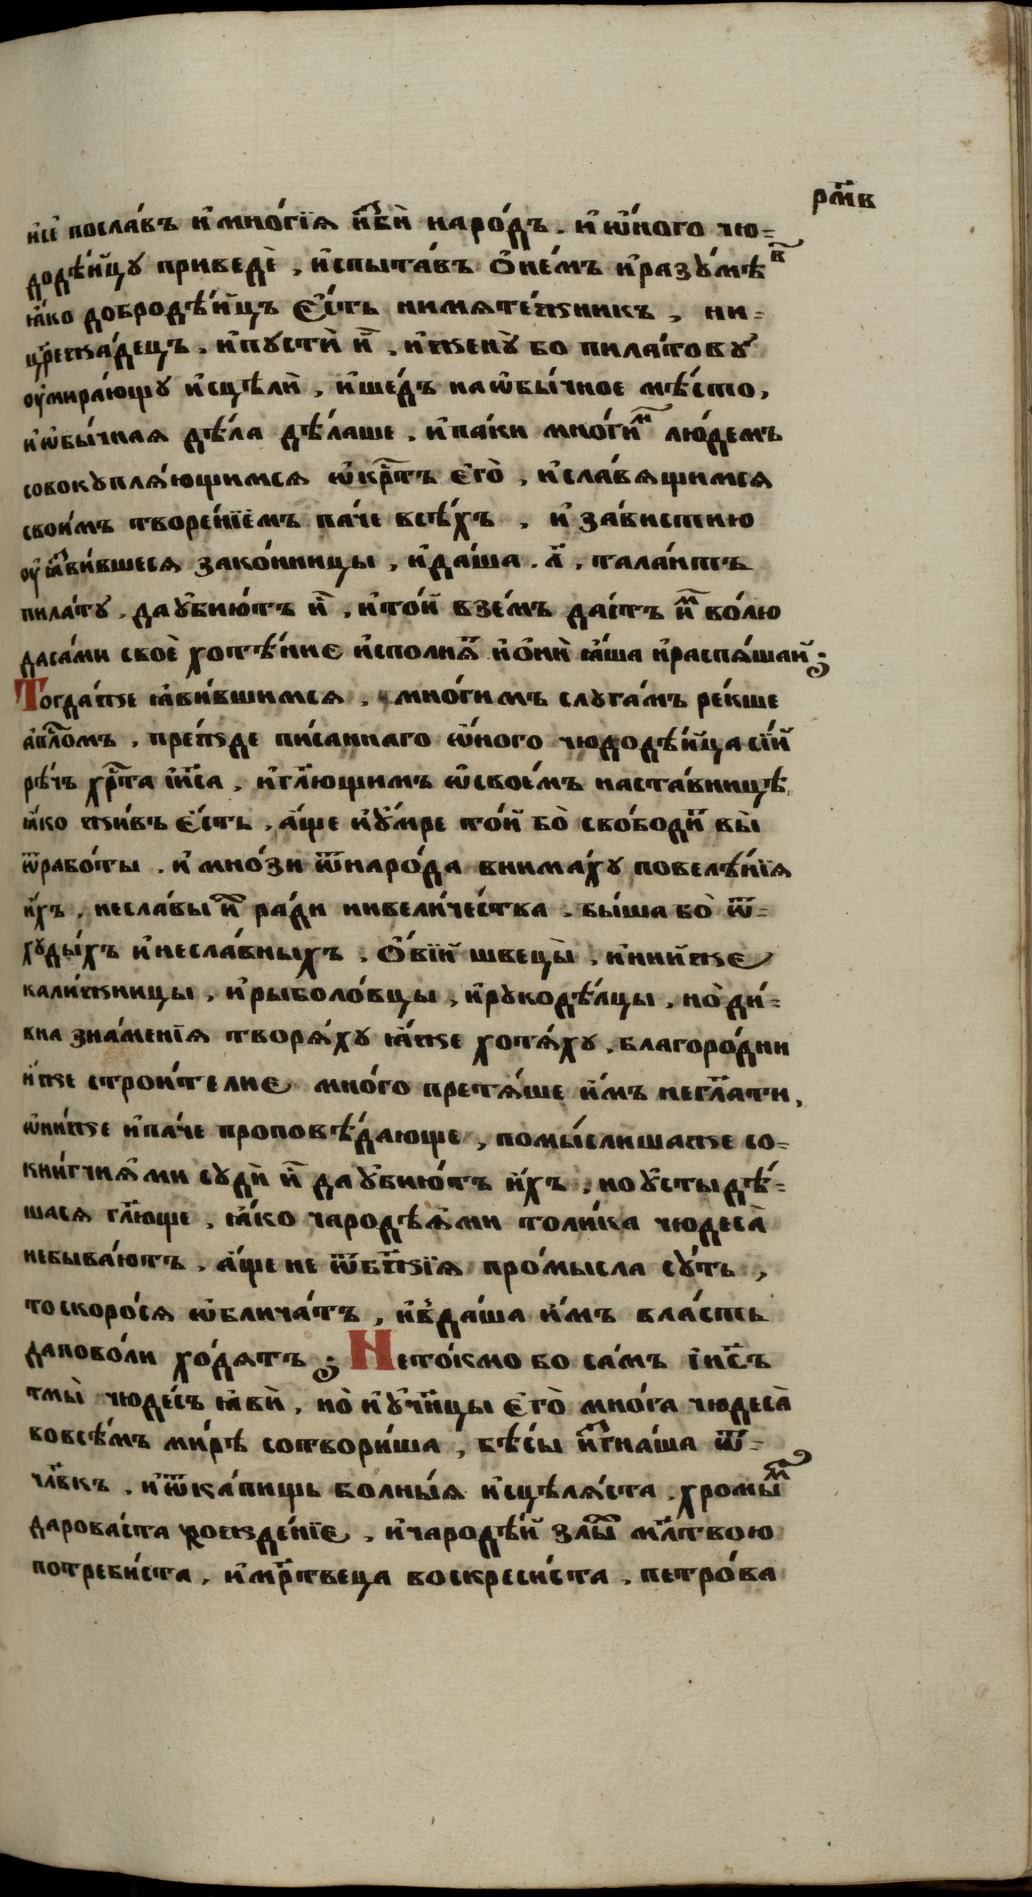 рм҃в
и҆сі пославъ и҆мно́гїѧ и҆зби́ наро́дъ. и҆ѡ҆́ного чю=
додѣ́йцу приведѐ, и҆спыта́въ ѻ҆не́мъ и҆разумѣ́в
ꙗ҆́ко добродѣ́йцъ є҆́сть нимѧте́жникъ, ни=
цр҃ежа́децъ. и҆пустѝ и҆̀, и҆женꙋ̀ бо пила́тову
ѹ҆мира́ющу и҆сцѣлѝ, и҆ше́дъ наѡ҆бы́чное мѣ́сто,
и҆ѡ҆бы́чнаѧ дѣ́ла дѣ́лаше. и҆па́ки мно́гим лю́демъ
совокуплѧ́ющимсѧ ѡ҆кр҃тъ є҆гѡ̀, и҆сла́вѧщимсѧ
свои́мъ творе́нїємъ па́че всѣ́хъ, и҆ за́вистию
ѹ҆ꙗ҆зви́вшесѧ зако́нницы, и҆да́ша. л҃, тала́нтъ
пила́ту. даѹ҆бию́тъ и҆̀, и҆то́й взе́мъ да́стъ и҆̀м во́лю
даса́ми своѐ хотѣ́ние и҆спо́лнѧт и҆ѻ҆нѝ ꙗ҆́ша и҆распѧ́шаи҆̀;
Тогда́же ꙗ҆ви́вшимсѧ, мно́гимъ слуга́мъ ре́кше
а҆пл҃омъ, пре́жде пи́саннаго ѡ҆́ного чюдодѣ́йца сїй
рѣ́чь хр҃та і҆и҃са, и҆гл҃ющимъ ѡ҆свое́мъ наста́вницѣ,
ꙗ҆́ко жи́въ є҆́сть, а҆́ще и҆ѹ҆́мре то́й бо̀ свободи́т вы̀
ѿрабо́ты. и҆ мно́зи ѿнаро́да внима́ху повелѣ́нїѧ
и҆́хъ, несла́вы и҆м ра́ди нивели́чества. бы́ша бо̀ ѿ=
худы́хъ и҆несла́вныхъ. ѻ҆́вїй швецы̀, и҆ни́йже
кали́жницы, и҆рыболо́вцы, и҆рукодѣ́лцы, но̀ ди́=
вна зна́менїѧ творѧ́ху ꙗ҆́же хотѧ́ху. благоро́дни
и҆́же строи́телие мно́го претѧ́ше и҆́мъ негл҃ати,
ѡ҆ни́же и҆па́че проповѣ́дающе, помы́слишаже со=
кни́гчиѧ́ми судѝ и҆̀ даѹ҆бию́тъ и҆́хъ, ноѹ҆стыдѣ́=
шасѧ гл҃юще, ꙗ҆́ко чародѣѧ́ми толи́ка чюдеса̀
небыва́ютъ, а҆́ще не ѿбж҃їѧ про́мысла су́ть,
тоскоро́сѧ ѡ҆блича́тъ, и҆вда́ша и҆́мъ вла́сть
даповоли хо́дѧтъ; Нето́кмо бо са́мъ і҆и҃съ
тмы̀ чюде́съ ꙗ҆вѝ, но̀ и҆ѹ҆чн҃цы є҆гѡ̀ мно́га чюдеса̀
вовсѣ́мъ ми́рѣ сотвори́ша, бѣ́сы и҆згна́ша ѿ=
чл҃вкъ. и҆ѿка́пищь болны́ѧ и҆сцѣлѧ́ста. хромы́м
дарова́ста хожде́нїе, и҆чародѣ́й злы́х мл҃твою
потреби́ста, и҆мр҃твеца воскреси́ста. петро́ва